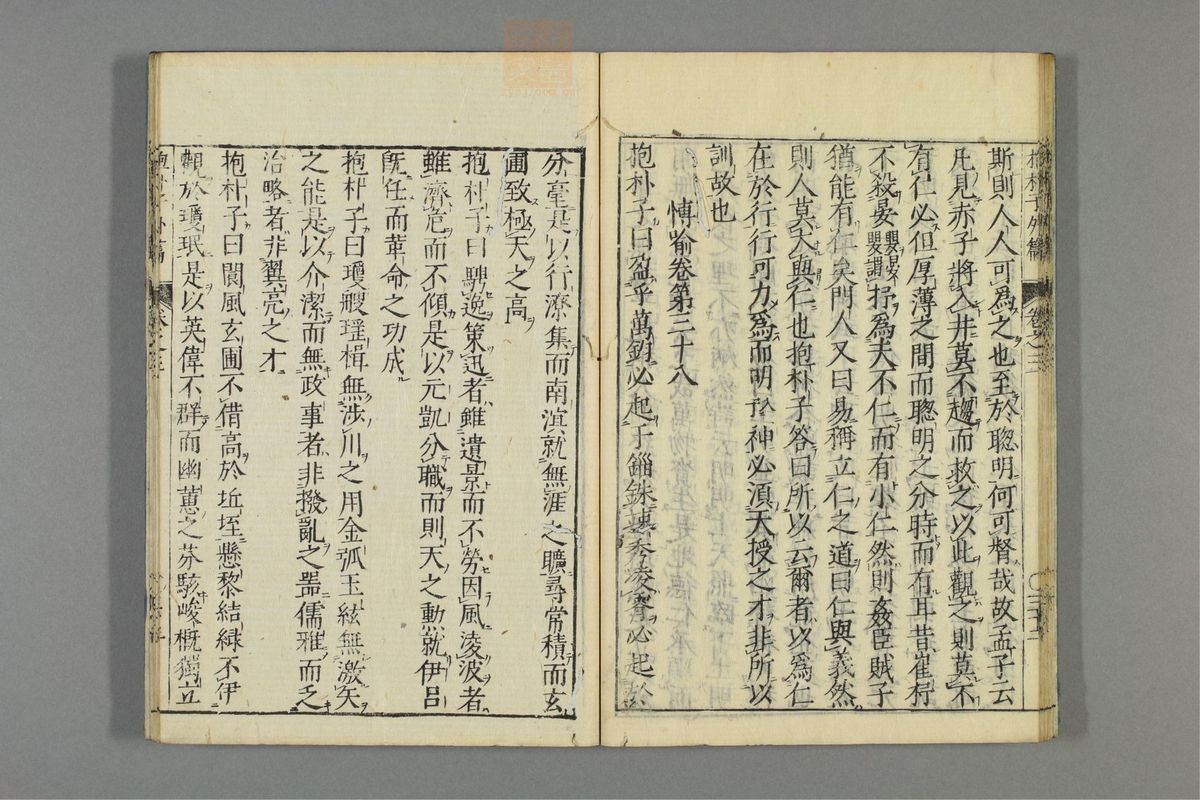 斯則人人可為之也至於聰明何可督哉故孟子云
凡見赤子將入井莫不趨而救之以此觀之則莫不
有仁心但厚薄之間而聰明之分時而有耳昔崔杼
不殺晏嬰晏嬰謂杼為大不仁而有小仁然則奸臣賊子
猶能有仁矣門人又曰易稱立仁之道曰仁與義然
則人莫大與仁也抱朴子答曰所以云爾者以為仁
在於行行可力為而明於神必須天授之才非所以
訓故也
博喻卷第三十八
抱朴子曰盈乎萬鈞必起于錙銖竦秀凌霄必起於
分毫是以行潦集而南溟就無涯之曠尋常積而玄
圃致極天之高
抱朴子曰騁逸策迅者雖遺景而不勞因風凌波者
雖濟危而不傾是以元凱分職而則天之勳就伊呂
既任而革命之功成
抱朴子曰瓊艘瑶楫無涉川之用金弧玉絃無激矢
之能是以介潔而無政事者非撥亂之器儒雅而乏
治略者非翼亮之才
抱朴子曰閬風玄圃不借高於丘垤懸黎結緑不伊
觀於瓊珉是以英偉不群而幽蕙之芬駭峻概獨立